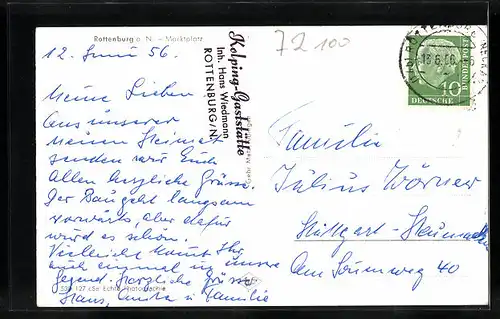 Rottenburg a. N. – Marktplatz
12. Juni 56.
Meine Lieben
Aus unserer
neuen Heimat
senden wir Euch
Allen herzliche Grüsse.
Der Bau geht langsam
vorwärts, aber dafür
wird es schön.
Vielleicht kommt Ihr
auch einmal in unsere
Gegend. Herzliche Grüsse
Hans, Anita u. Familie
127 Echte Photographie
Kolping-Gaststätte
Inh. Hans Wiedmann
ROTTENBURG/N.
72 100
ROTTENBURG (NECKAR)
10
DEUTSCHE
BUNDESPOST
Familie
Julius Wörner
Stuttgart-
Am Sonnenweg 40